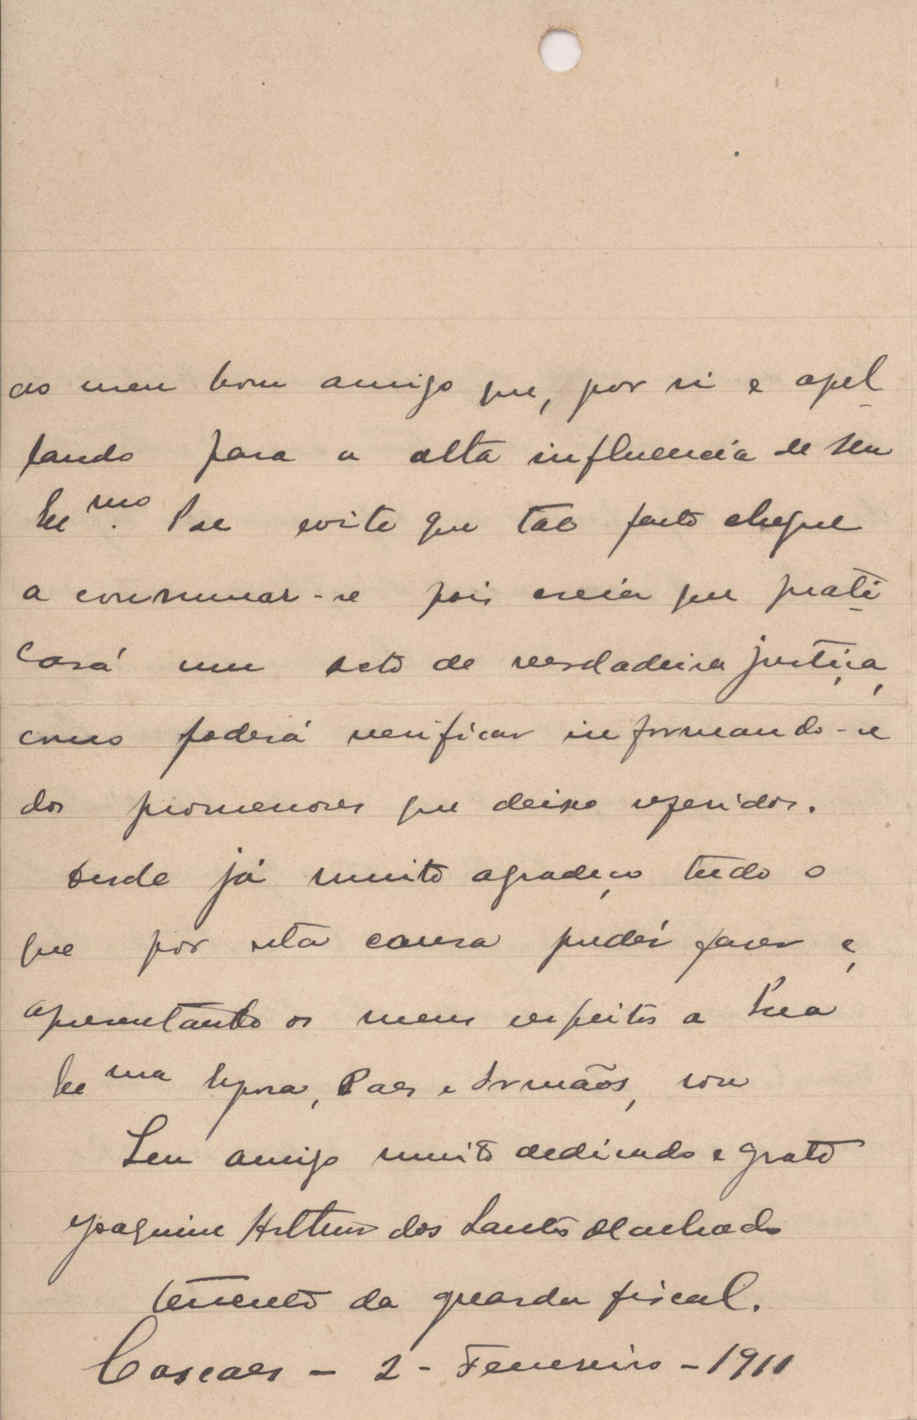 ao meu bom amigo que, por si e apel
lando para a alta influencia de seu
Ex.mo Pae evite que tal facto chegue
a consummar-se pois creia que prati
cará um acto de verdadeira justiça,
como poderá verificar informando-se
dos promenores que deixo referidos.
Desde já muito agradeço tudo o
que por esta causa pudér fazer e,
apresentando os meus respeitos a Sua
Ex.ma Esposa, Paes e Irmãos, sou
Seu amigo muito dedicado e grato
Joaquim Arthur dos Santos Machado
tenente da guarda fiscal.
Cascaes - 2 - Fevereiro - 1911